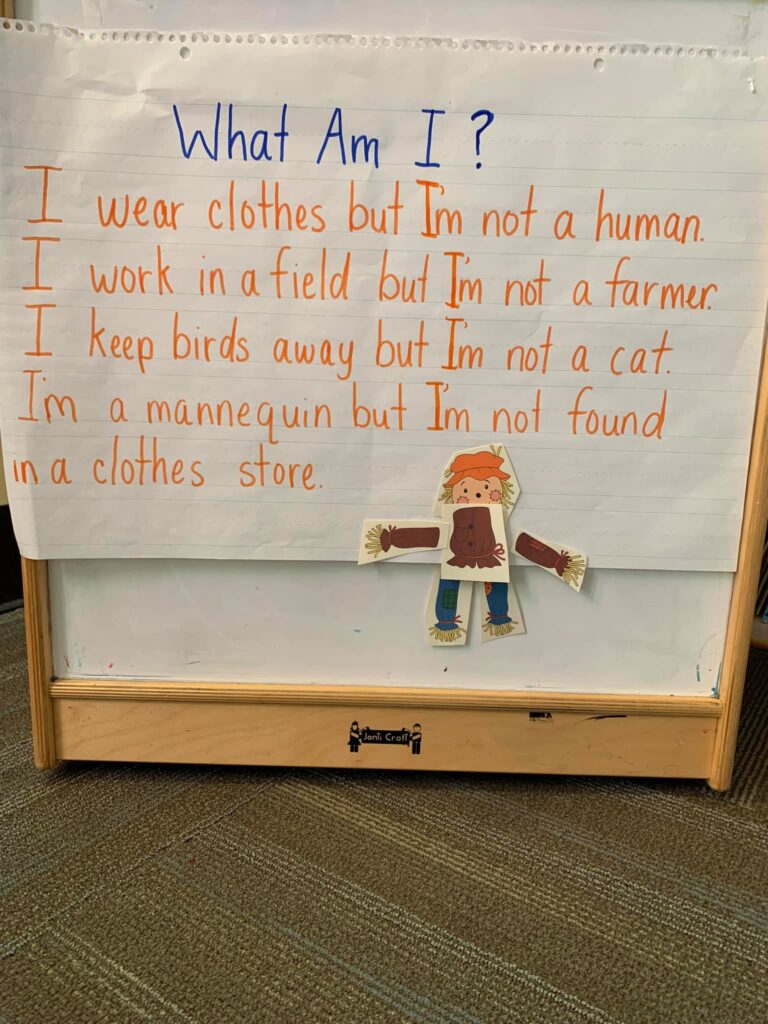 What Am I?
I wear clothes but I'm not a human.
I work in a field but I'm not a farmer.
I keep birds away but I'm not a cat.
I'm a mannequin but I'm not found
in a clothes store.
Jonti Craft